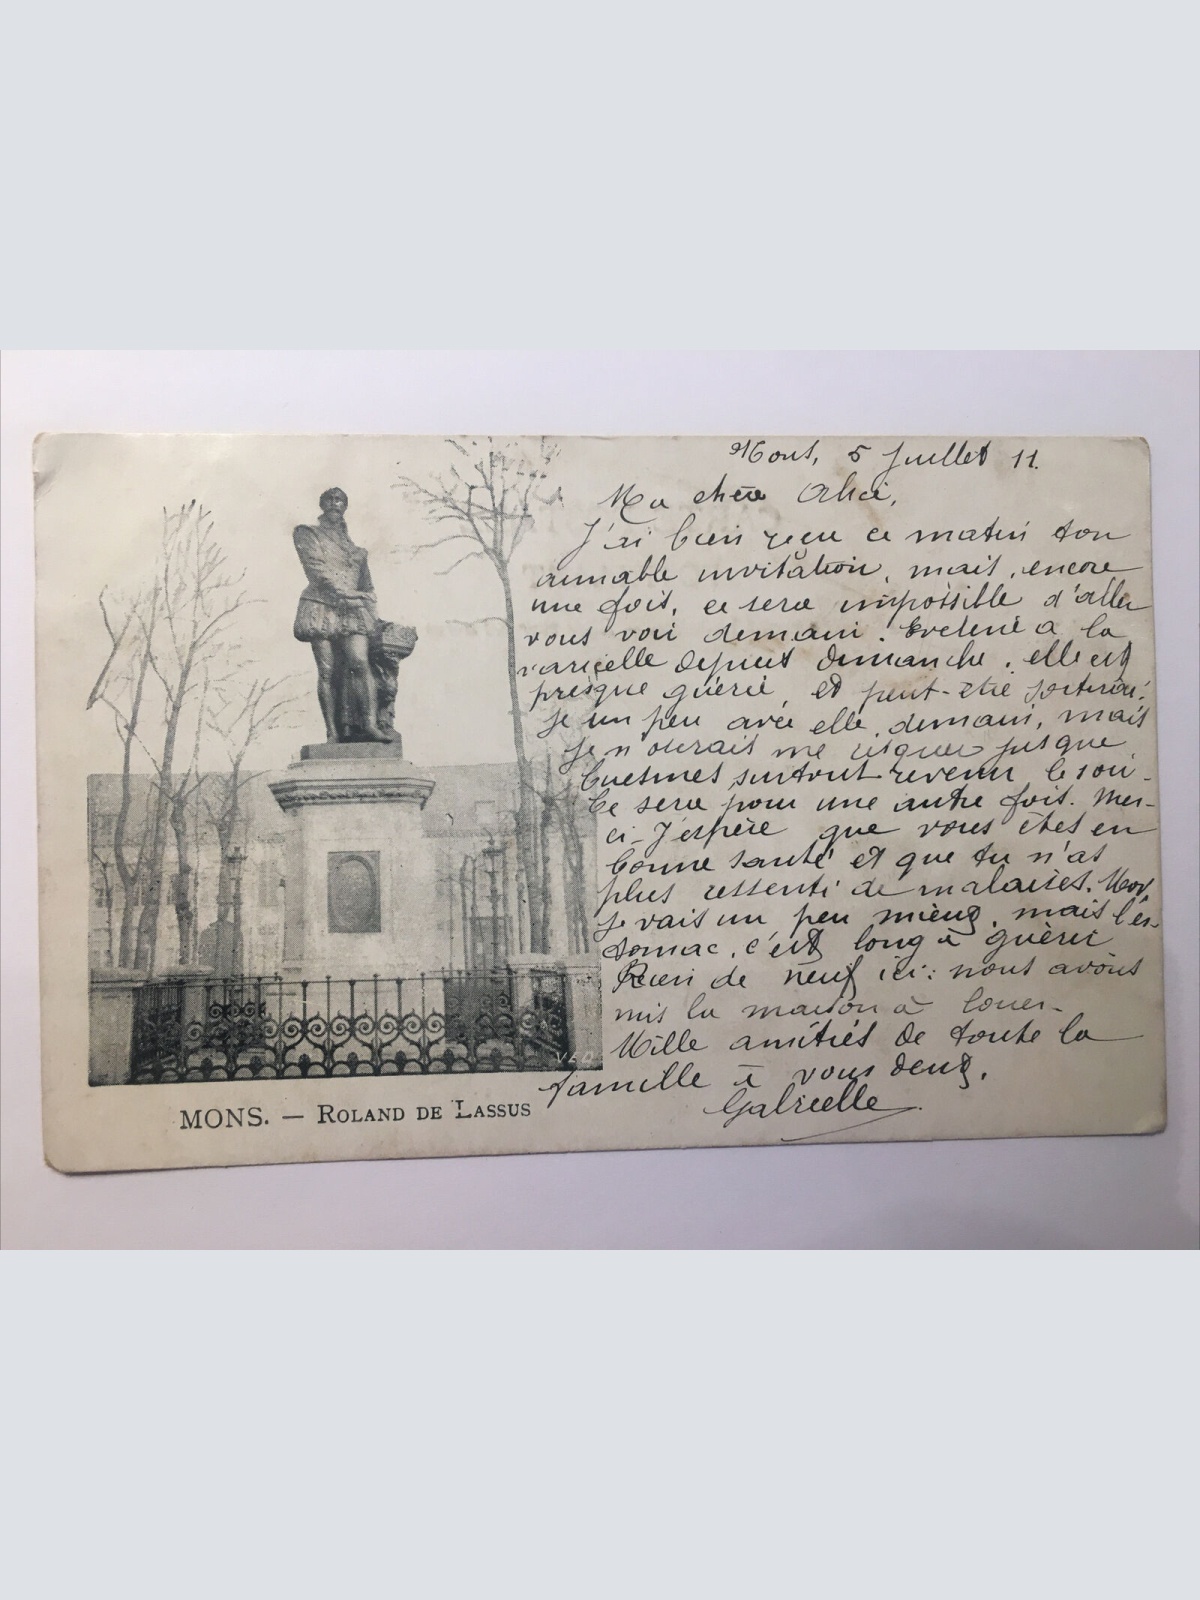 Mons, 5 Juillet 11.
Ma chère Alice,
J'ai bien reçu ce matin ton
aimable invitation, mais, encore
une fois, ce sera impossible d'aller
vous voir demain. Evelene a la
varicelle depuis dimanche, elle est
presque guérie, et peut-être sortirai-
je un peu avec elle, demain, mais
je n'oserais me risquer jusque
Cuesmes surtout revenir le soir.
Ce sera pour une autre fois. Mer-
ci. J'espère que vous êtes en
bonne santé et que tu n'as
plus ressenti de malaises. Moi,
je vais un peu mieux, mais l'es-
tomac, c'est long à guérir
Rien de neuf ici: nous avons
mis la maison à louer.
Mille amitiés de toute la
famille à vous deux.
Gabrielle
MONS. — ROLAND DE LASSUS